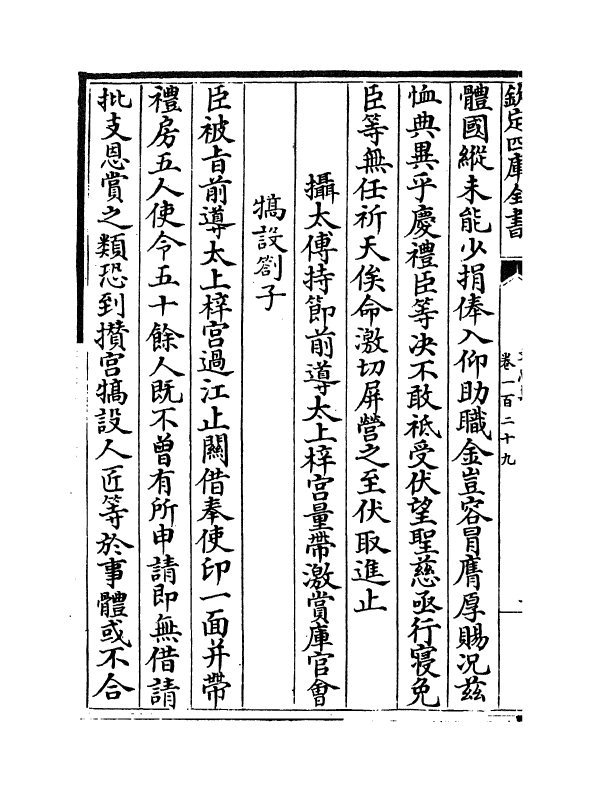 欽定四庫全書
卷一百二十九
體國縱未能少捐俸入仰助職金豈容冒膺厚賜況兹
恤典異乎慶禮臣等决不敢祗受伏望聖慈亟行寢免
臣等無任祈天俟命激切屏營之至伏取進止
攝太傅持節前導太上梓宫量帶激賞庫官會
犒設劄子
臣被㫖前導太上梓宫過江止關借奉使印一面并帶
禮房五人使令五十餘人既不曽有所申請即無借請
批支恩賞之類恐到攢宫犒設人匠等於事體或不合